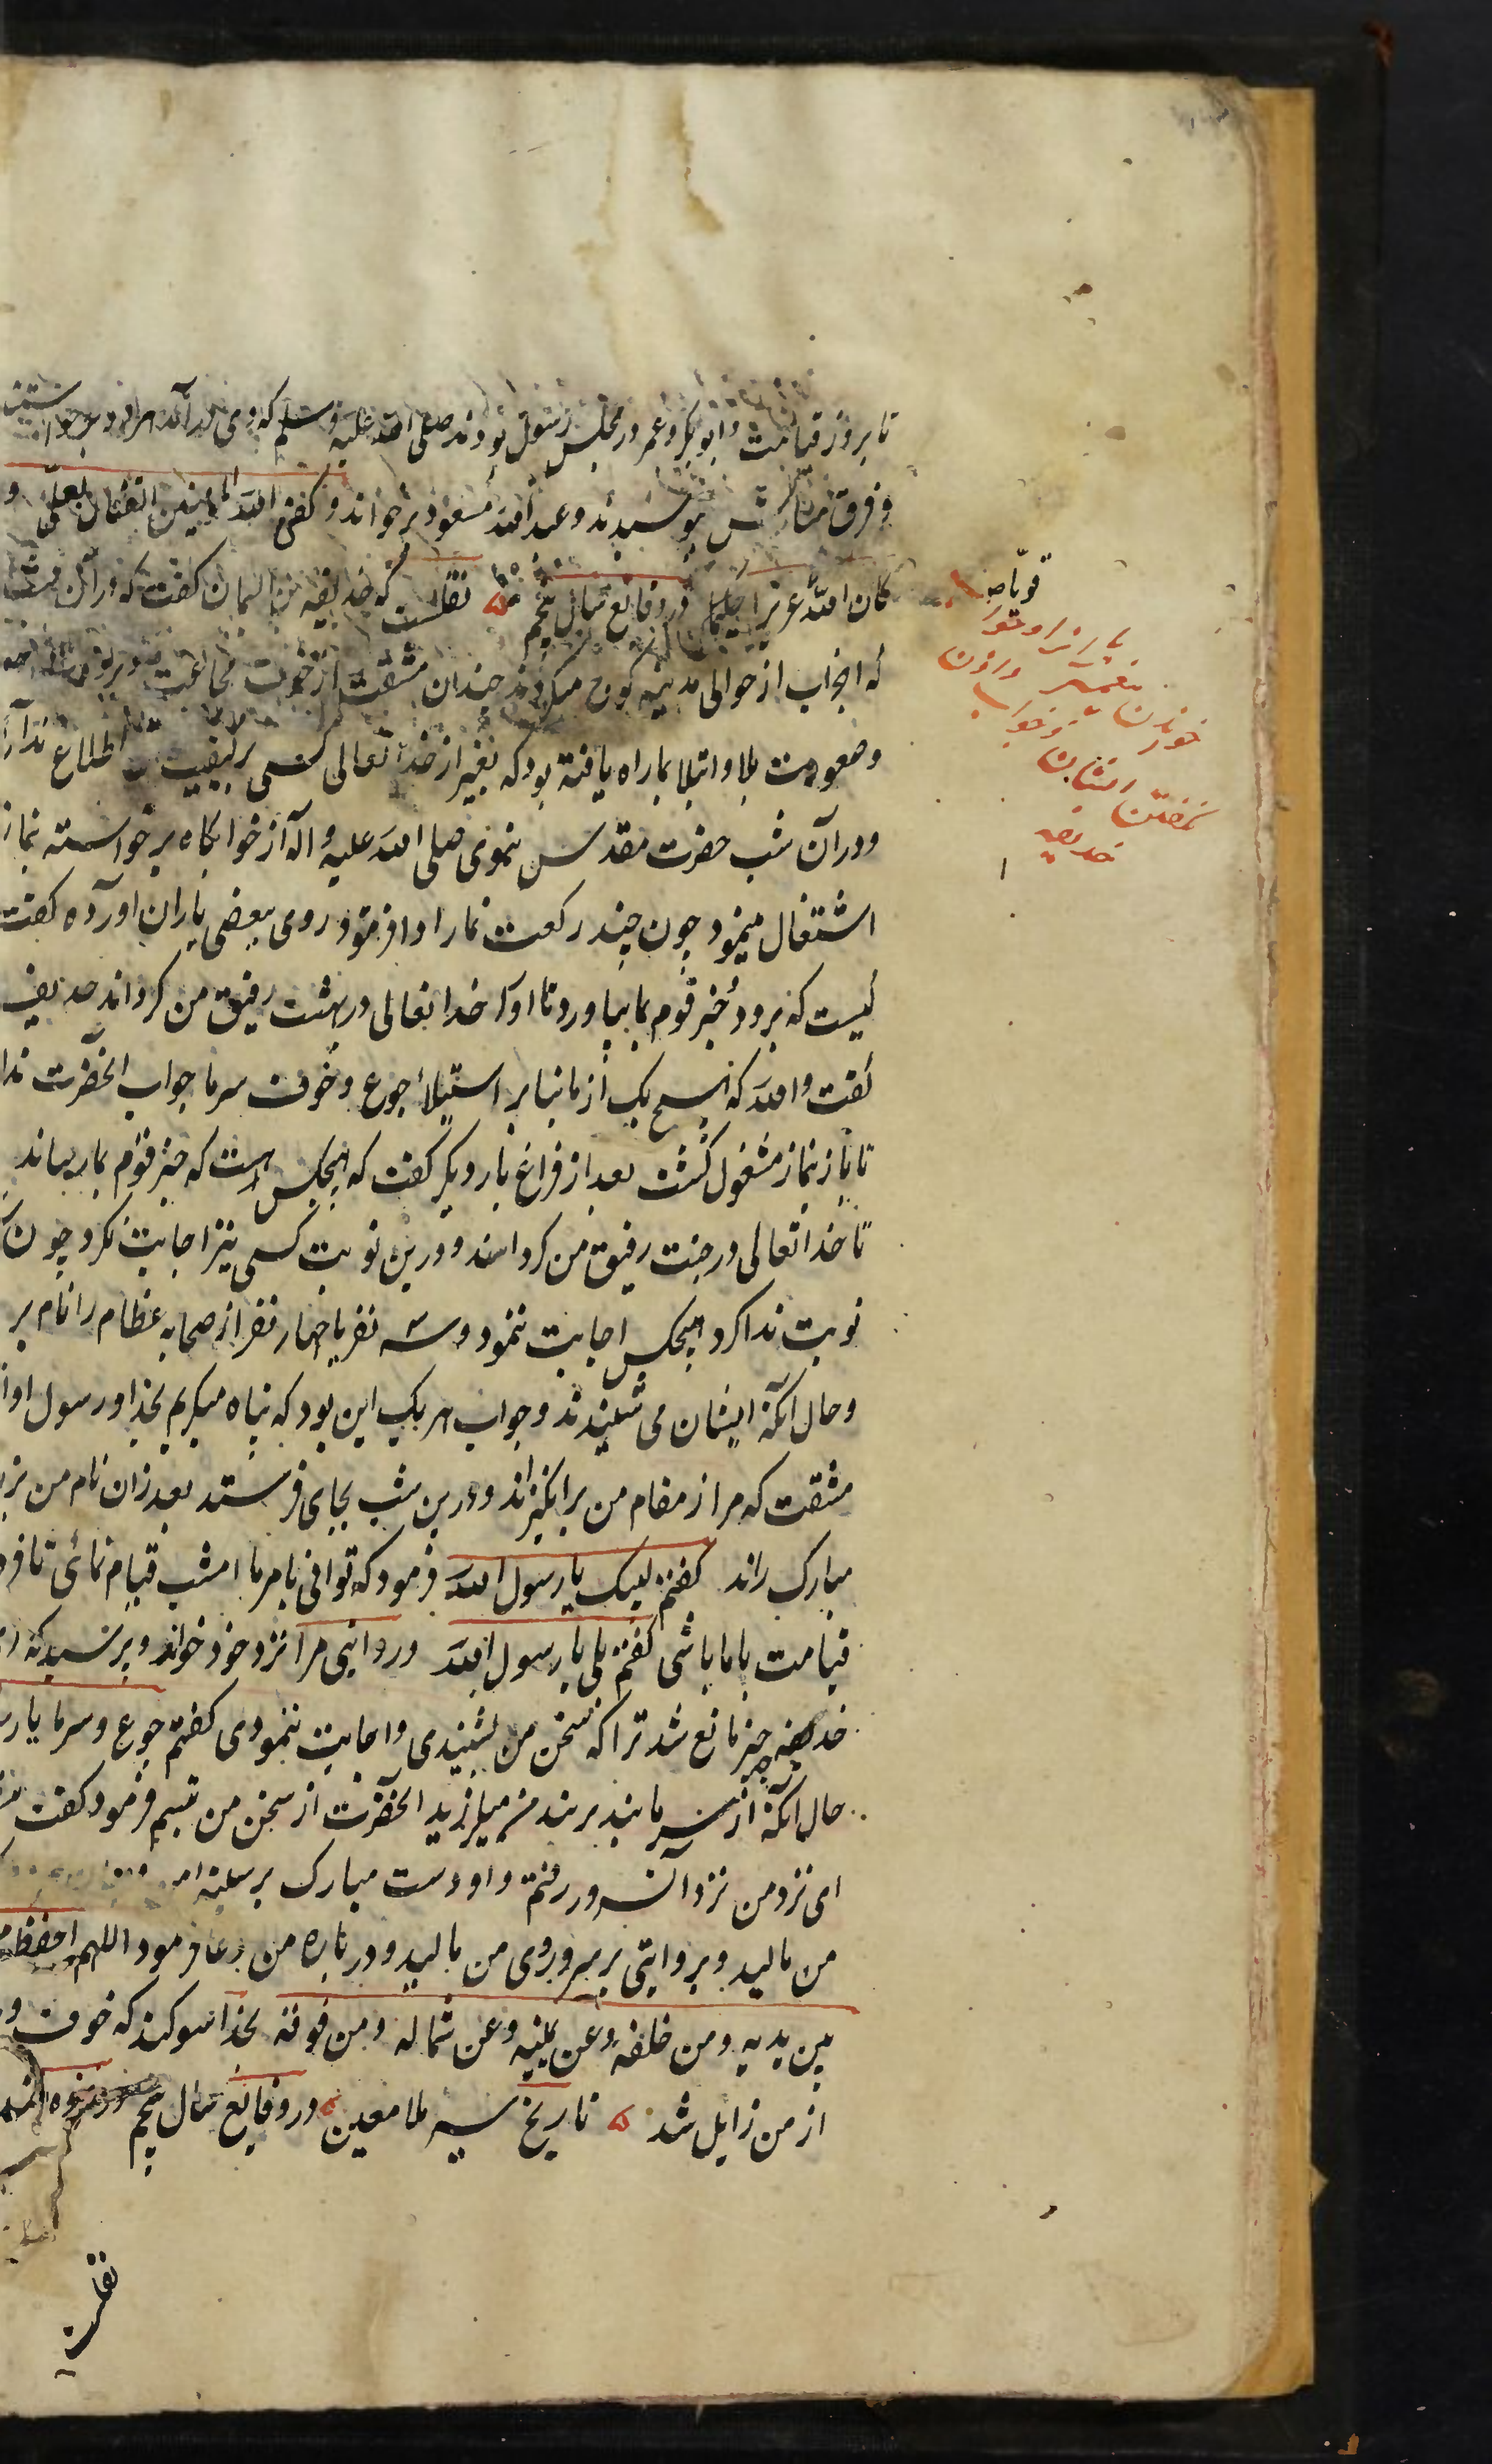 تا بروز قیامت و ابوبکر و عمر در مجلس رسول بودند صلی الله علیه و سلم که وی در آمد هر دو برخواستند
و فرق مبارکش بوسیدند و عبدالله مسعود برخواند و کفی الله المؤمنین القتال بعلی و
کان الله عزیزا حکیما در وقایع سال پنجم نقلست که حذیفه بن الیمان گفت که در آن شب
که احزاب از حوالی مدینه کوچ میکردند چندان مشقت از خوف مجاعت و برودت
و صعوبت بلا و ابتلا بما راه یافته بود که بغیر از خدا تعالی کسی بر کیفیت اطلاع ندارد
و در آن شب حضرت مقدس نبوی صلی الله علیه و اله از خوابگاه برخواسته نماز
اشتغال مینمود چون چند رکعت نماز ادا فرمود روی ببعضی یاران آورده گفت
کیست که برود خبر قوم بما بیاورد تا او را خدا تعالی در بهشت رفیق من گرداند حذیفه
گفت والله که هیچ یک از ما بنا بر استیلاء جوع و خوف سرما جواب آنحضرت ندا
تا باز بنماز مشغول گشت بعد از فراغ بار دیگر گفت که هیچکس هست که خبر قوم بما رساند
تا خدا تعالی در جنت رفیق من گرداند و درین نوبت کسی نیز اجابت نکرد چون
نوبت ندا کرد هیچکس اجابت ننمود و سه نفر یا چهار نفر از صحابه عظام را نام بر
و حال آنکه ایشان می شنیدند و جواب هر یک این بود که پناه میگیرم بخدا و رسول او از
مشقت که مرا از مقام من برانگیزاند و درین شب بجای فرستد بعد از آن نام من بز
مبارک راند گفتم لبیک یا رسول الله فرمود که توانی بامر ما امشب قیام نمائی تا فرد
قیامت با ما باشی گفتم بلی یا رسول الله و روایتی مرا نزد خود خواند و پرسید که ای
حذیفه چه چیز مانع شد ترا که سخن من بشنیدی و اجابت ننمودی گفتم جوع و سرما یا رس
حال آنکه از سرما بند بر بند من میلرزید آنحضرت از سخن من تبسم فرمود گفت
ای نزد من نزد آن سرور رفتم و او دست مبارک بر سینه
من مالید و بروایتی بر سر و روی من مالید و در باره من دعا فرمود اللهم احفظه م
بین یدیه و من خلفه و عن یمینه و عن شماله و من فوقه بخدا سوگند که خوف و
از من زایل شد تاریخ سیر ملا معین در وقایع سال پنجم
خوردن
ایشان
حذیفه